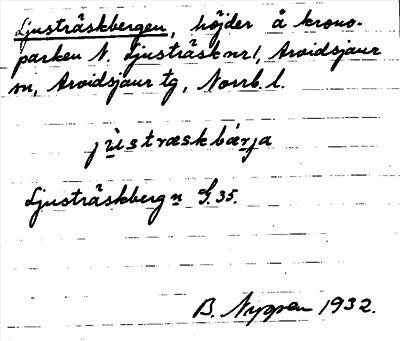 Ljusträskbergen, höjder å krono-
parken N. Ljusträsk nr 1, Arvidsjaur
sn, Arvidsjaur tg, Norrb. l.
jùstræskbárja
Ljusträskbergn G. 35.
B. Nygren 1932.